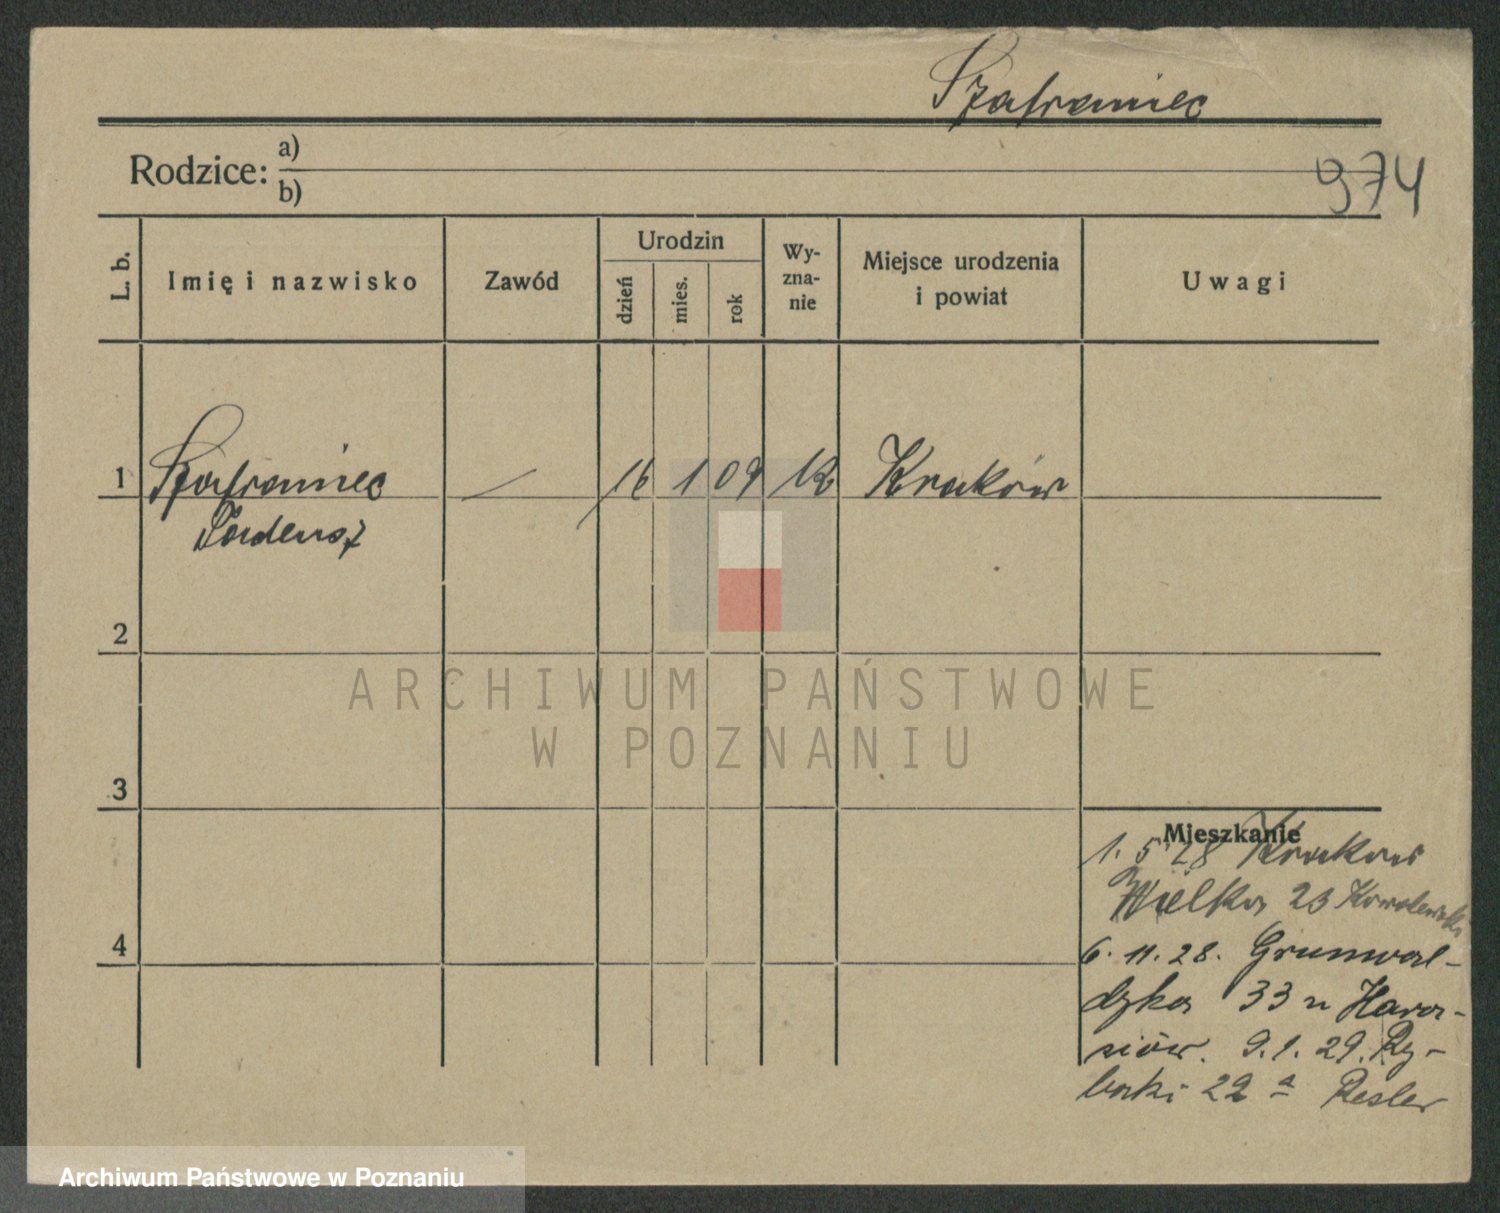 Szafraniec
Rodzice: a)
b)
974
L. b.
Imię i nazwisko
Zawód
Urodzin
dzień
mies.
rok
Wy-
zna-
nie
Miejsce urodzenia
i powiat
Uwagi
1 Szafraniec — 16 1 09 Kraków
2
3
4
Mieszkanie
1. 5 28 Krakow
Wielka 23
6. 11. 28. Grunwal-
dzka 33 u Hara-
siów. 9. 1. 29. Ry-
baki 22 a Resler
ARCHIWUM PAŃSTWOWE
W POZNANIU
Archiwum Państwowe w Poznaniu